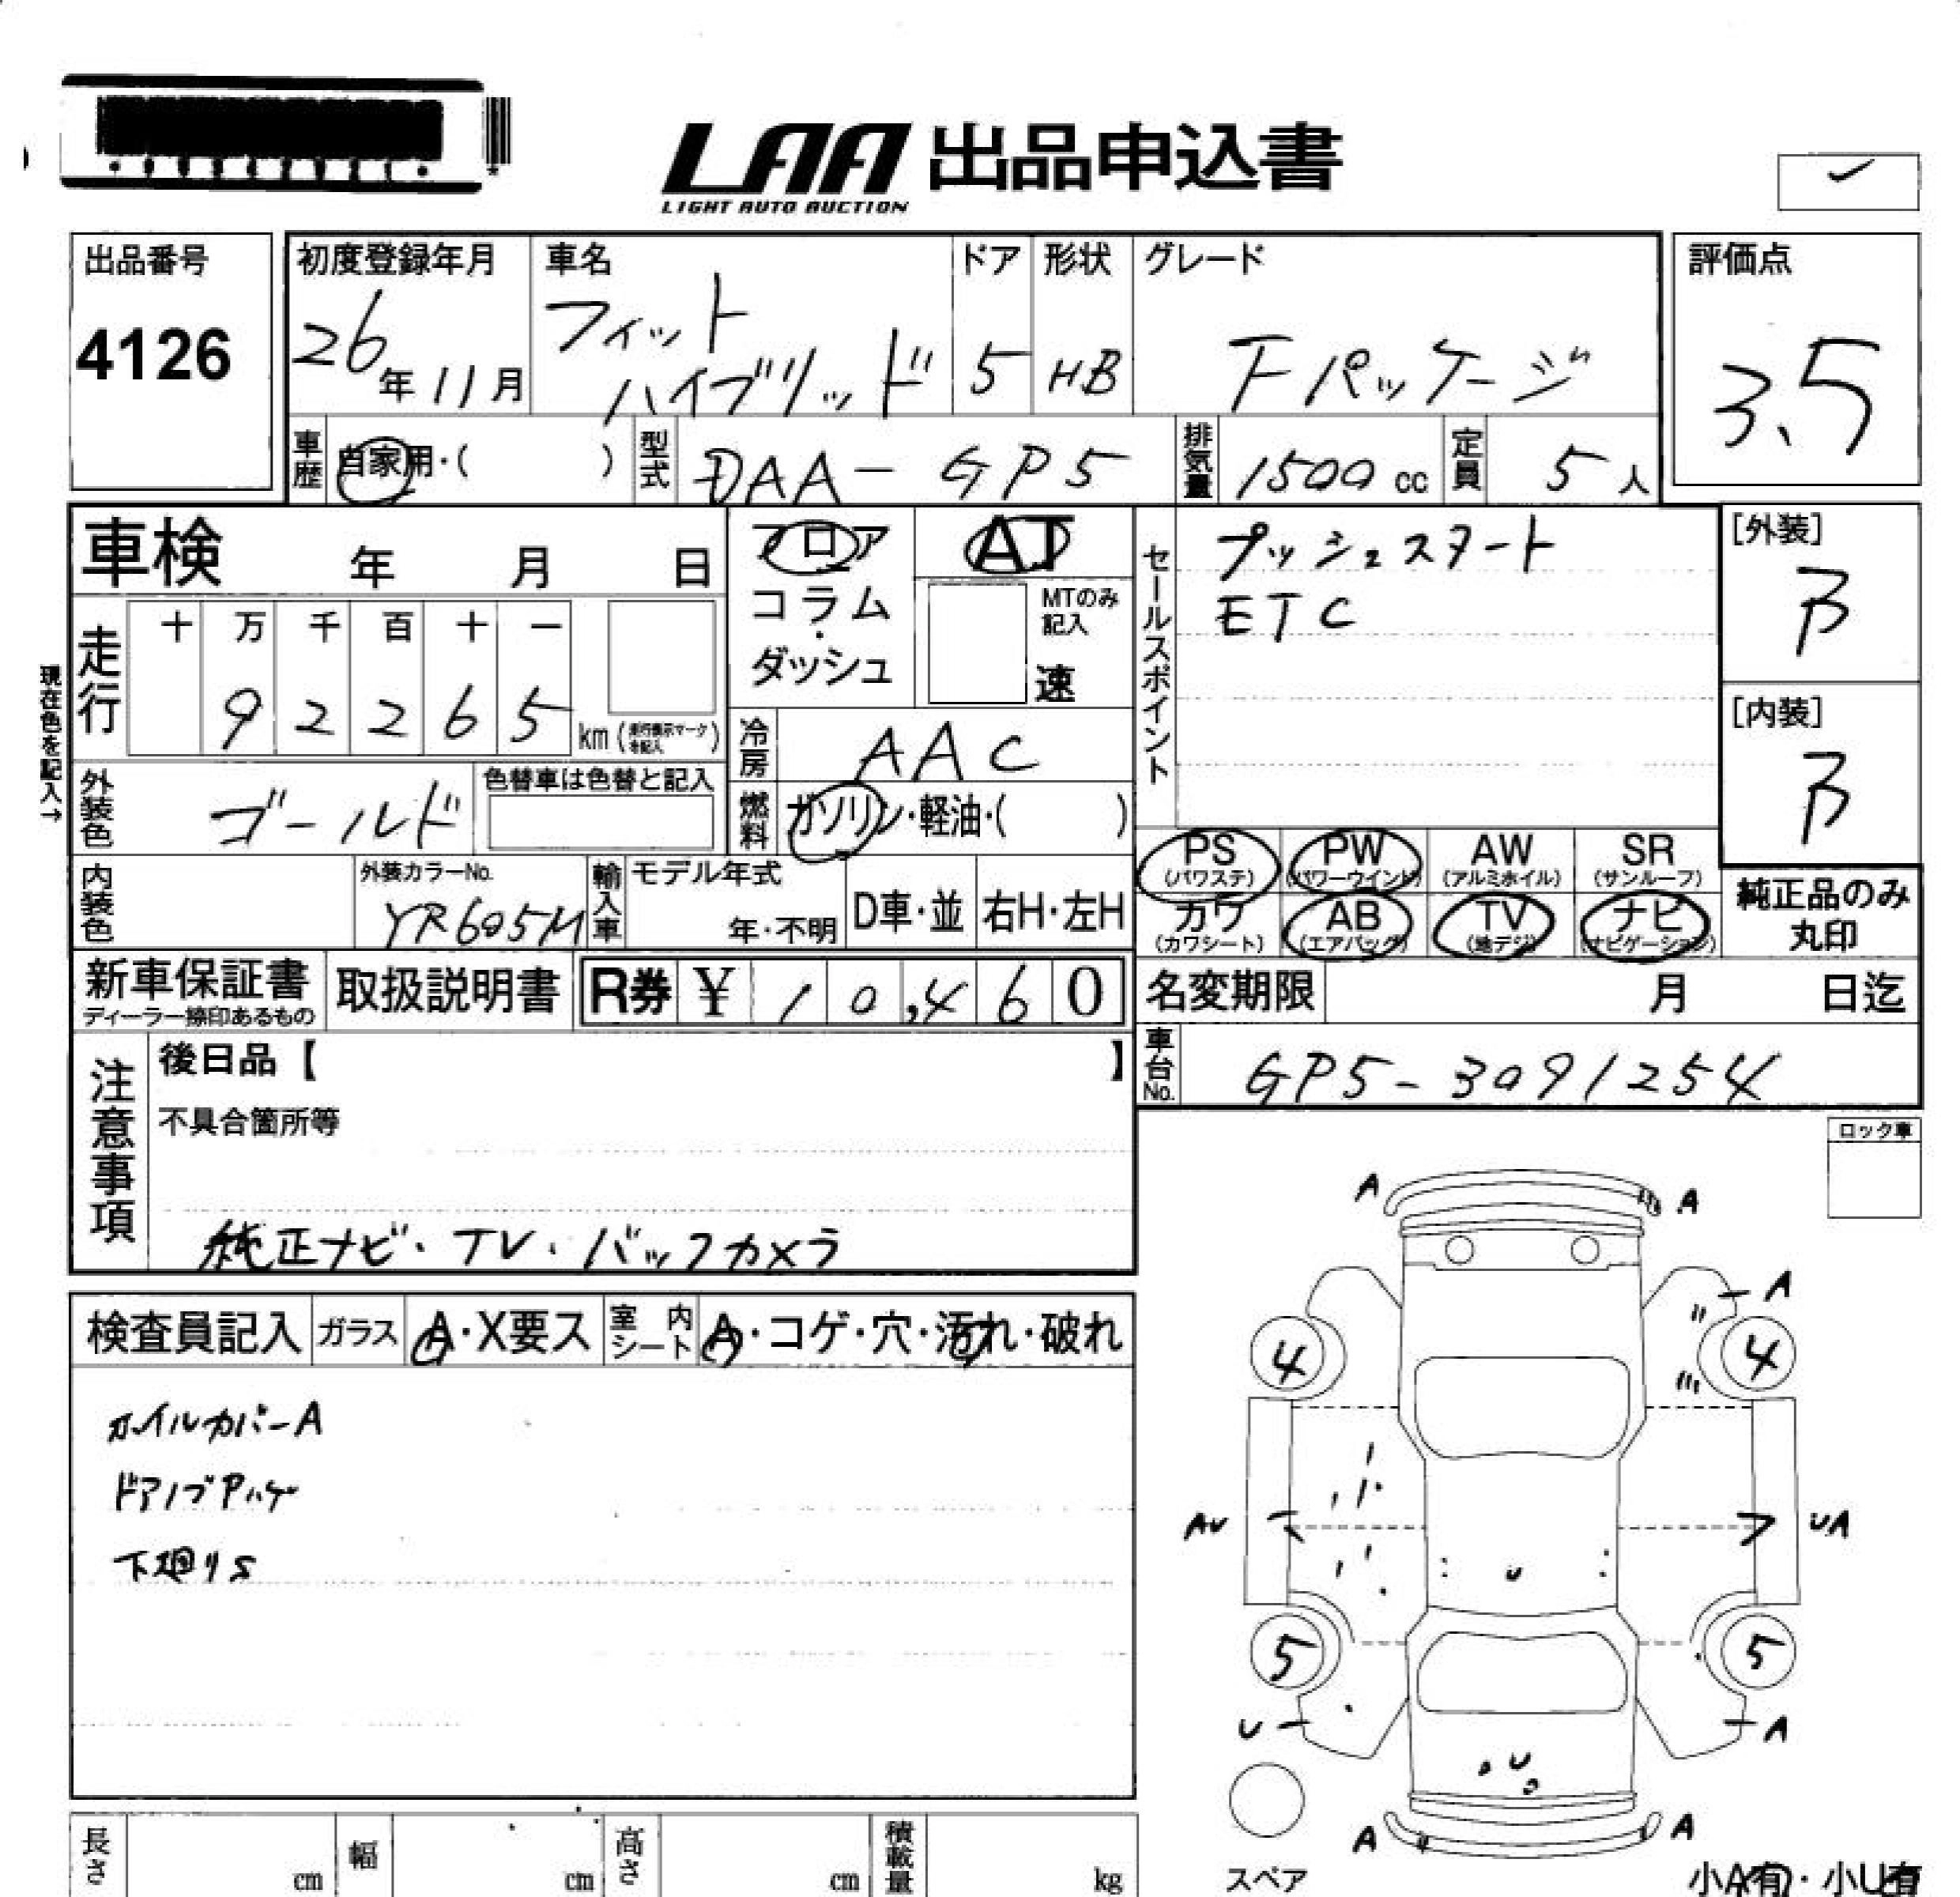 LAA 出品申込書
LIGHT AUTO AUCTION
出品番号
4126
初度登録年月
26年11月
車名
フィット
ハイブリッド
ドア
5
形状
HB
グレード
Fパッケージ
評価点
3.5
車歴
自家用・( )
型式
DAA-GP5
排気量
1500cc
定員
5人
車検 年 月 日
フロア
コラム
・
ダッシュ
AT
MTのみ
記入
速
セールスポイント
プッシュスタート
ETC
[外装]
B
[内装]
B
現在色を記入→
走行
十 万 千 百 十 一
9 2 2 6 5
km(走行表示マークを記入)
冷房
AAC
外装色
ゴールド
色替車は色替と記入
燃料
ガソリン・軽油・( )
PS
(パワステ)
PW
(パワーウインド)
AW
(アルミホイル)
SR
(サンルーフ)
内装色
外装カラーNo.
YR605M
輸入車
モデル年式
年・不明
D車・並
右H・左H
カワ
(カワシート)
AB
(エアバッグ)
TV
(地デジ)
ナビ
(ナビゲーション)
純正品のみ
丸印
新車保証書
ディーラー捺印あるもの
取扱説明書
R券 ¥ 10,460
名変期限 月 日迄
車台No.
GP5-3091254
注意事項
後日品【 】
不具合箇所等
純正ナビ・TV・バックカメラ
ロック車
検査員記入
ガラス
A・X要ス
室内シート
A・コゲ・穴・汚れ・破れ
ホイルカバーA
ドアノブPハゲ
下廻りS
A A
A
4 4
AU UA
U
5 5
U A
U
A A
スペア
小A有・小U有
長さ cm
幅 cm
高さ cm
積載量 kg